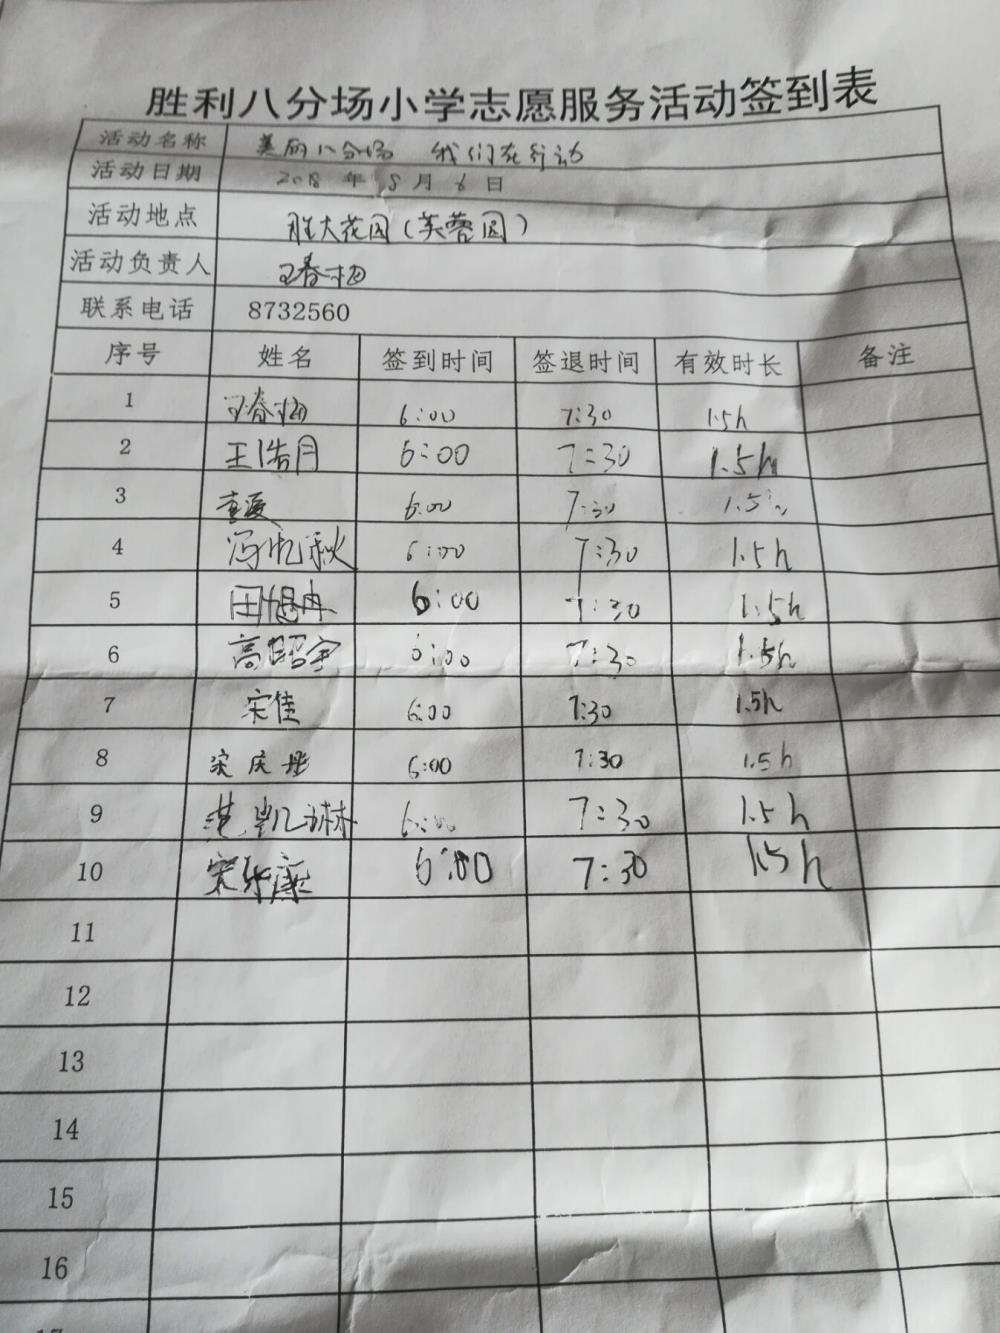 胜利八分场小学志愿服务活动签到表
活动名称 美丽八分场 我们在行动
活动日期 2018 年 8 月 6 日
活动地点 胜大花园(芙蓉园)
活动负责人 王春梅
联系电话 8732560
序号 姓名 签到时间 签退时间 有效时长 备注
1 王春梅 6:00 7:30 1.5h
2 王浩月 6:00 7:30 1.5h
3 6:00 7:30 1.5h
4 冯忆秋 6:00 7:30 1.5h
5 6:00 7:30 1.5h
6 高昭宇 6:00 7:30 1.5h
7 宋佳 6:00 7:30 1.5h
8 宋庆彤 6:00 7:30 1.5h
9 范凯琳 6:00 7:30 1.5h
10 宋乐康 6:00 7:30 1.5h
11
12
13
14
15
16
17